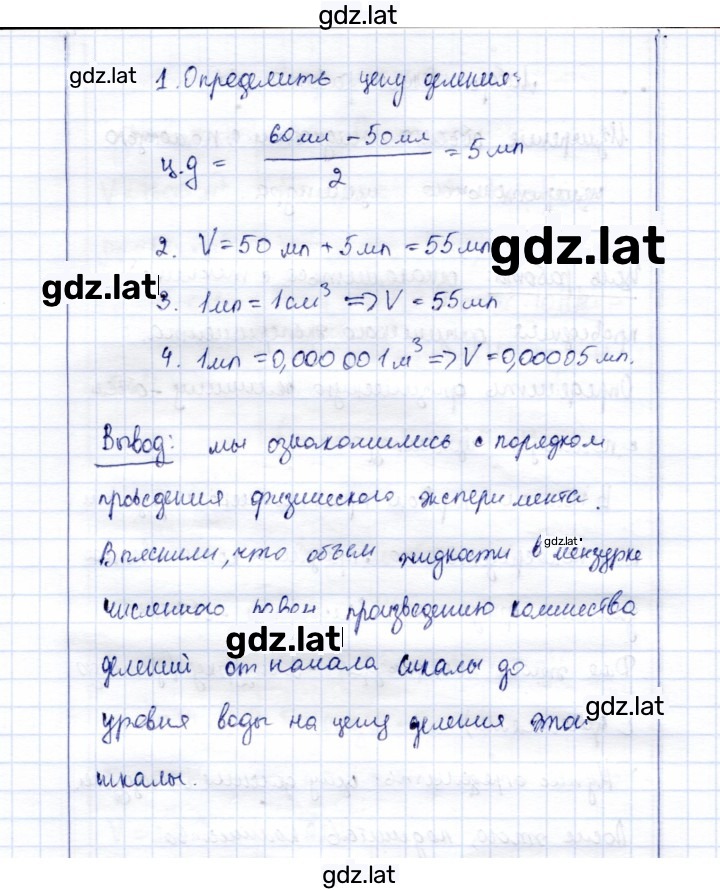 gdz.lat
gdz.lat
1. Определить цену деления:
ц.д = (60мл - 50мл) / 2 = 5мл
2. V = 50 мл + 5мл = 55мл
gdz.lat
gdz.lat
3. 1мл = 1см³ => V = 55мл
4. 1мл = 0,000 001м³ => V = 0,00005мл.
Вывод: мы ознакомились с порядком
проведения физического эксперимента.
Выяснили, что объем жидкости в мензурке
gdz.lat
численного произведению количества
gdz.lat
делений от начала шкалы до
уровня воды на цену деления этой
gdz.lat
шкалы.
gdz.lat